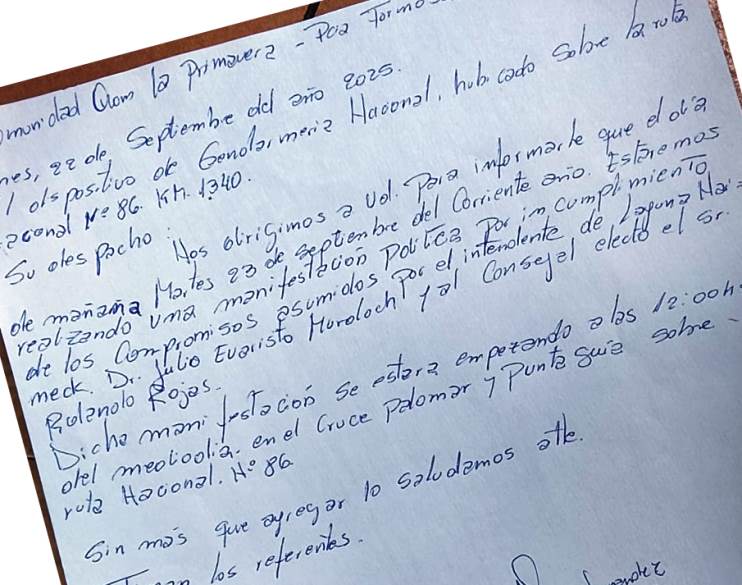 omunidad Qom la Primavera - Pcia Formo
nes, 22 de Septiembre del año 2025.
l dispositivo de Gendarmeria Nacional, hubicado sobre la ruta
acional Nº 86. KM. 1340.
Su despacho:
Nos dirigimos a Ud. Para informarle que el dia
de mañana Martes 23 de septiembre del Corriente año. Estaremos
realizando una manifestación Politica Por incumplimiento
de los Compromisos asumidos Por el intendente de Laguna Nai-
meck. Dr. Julio Evaristo Murdoch y al Consejal electo el Sr.
Rolando Rojas.
Dicha manifestación se estara empezando a las 12:00h
del mediodia. en el Cruce Palomar y Punta Guia sobre -
ruta Nacional. Nº 86
Sin más que agregar lo saludamos atte.
los referentes.